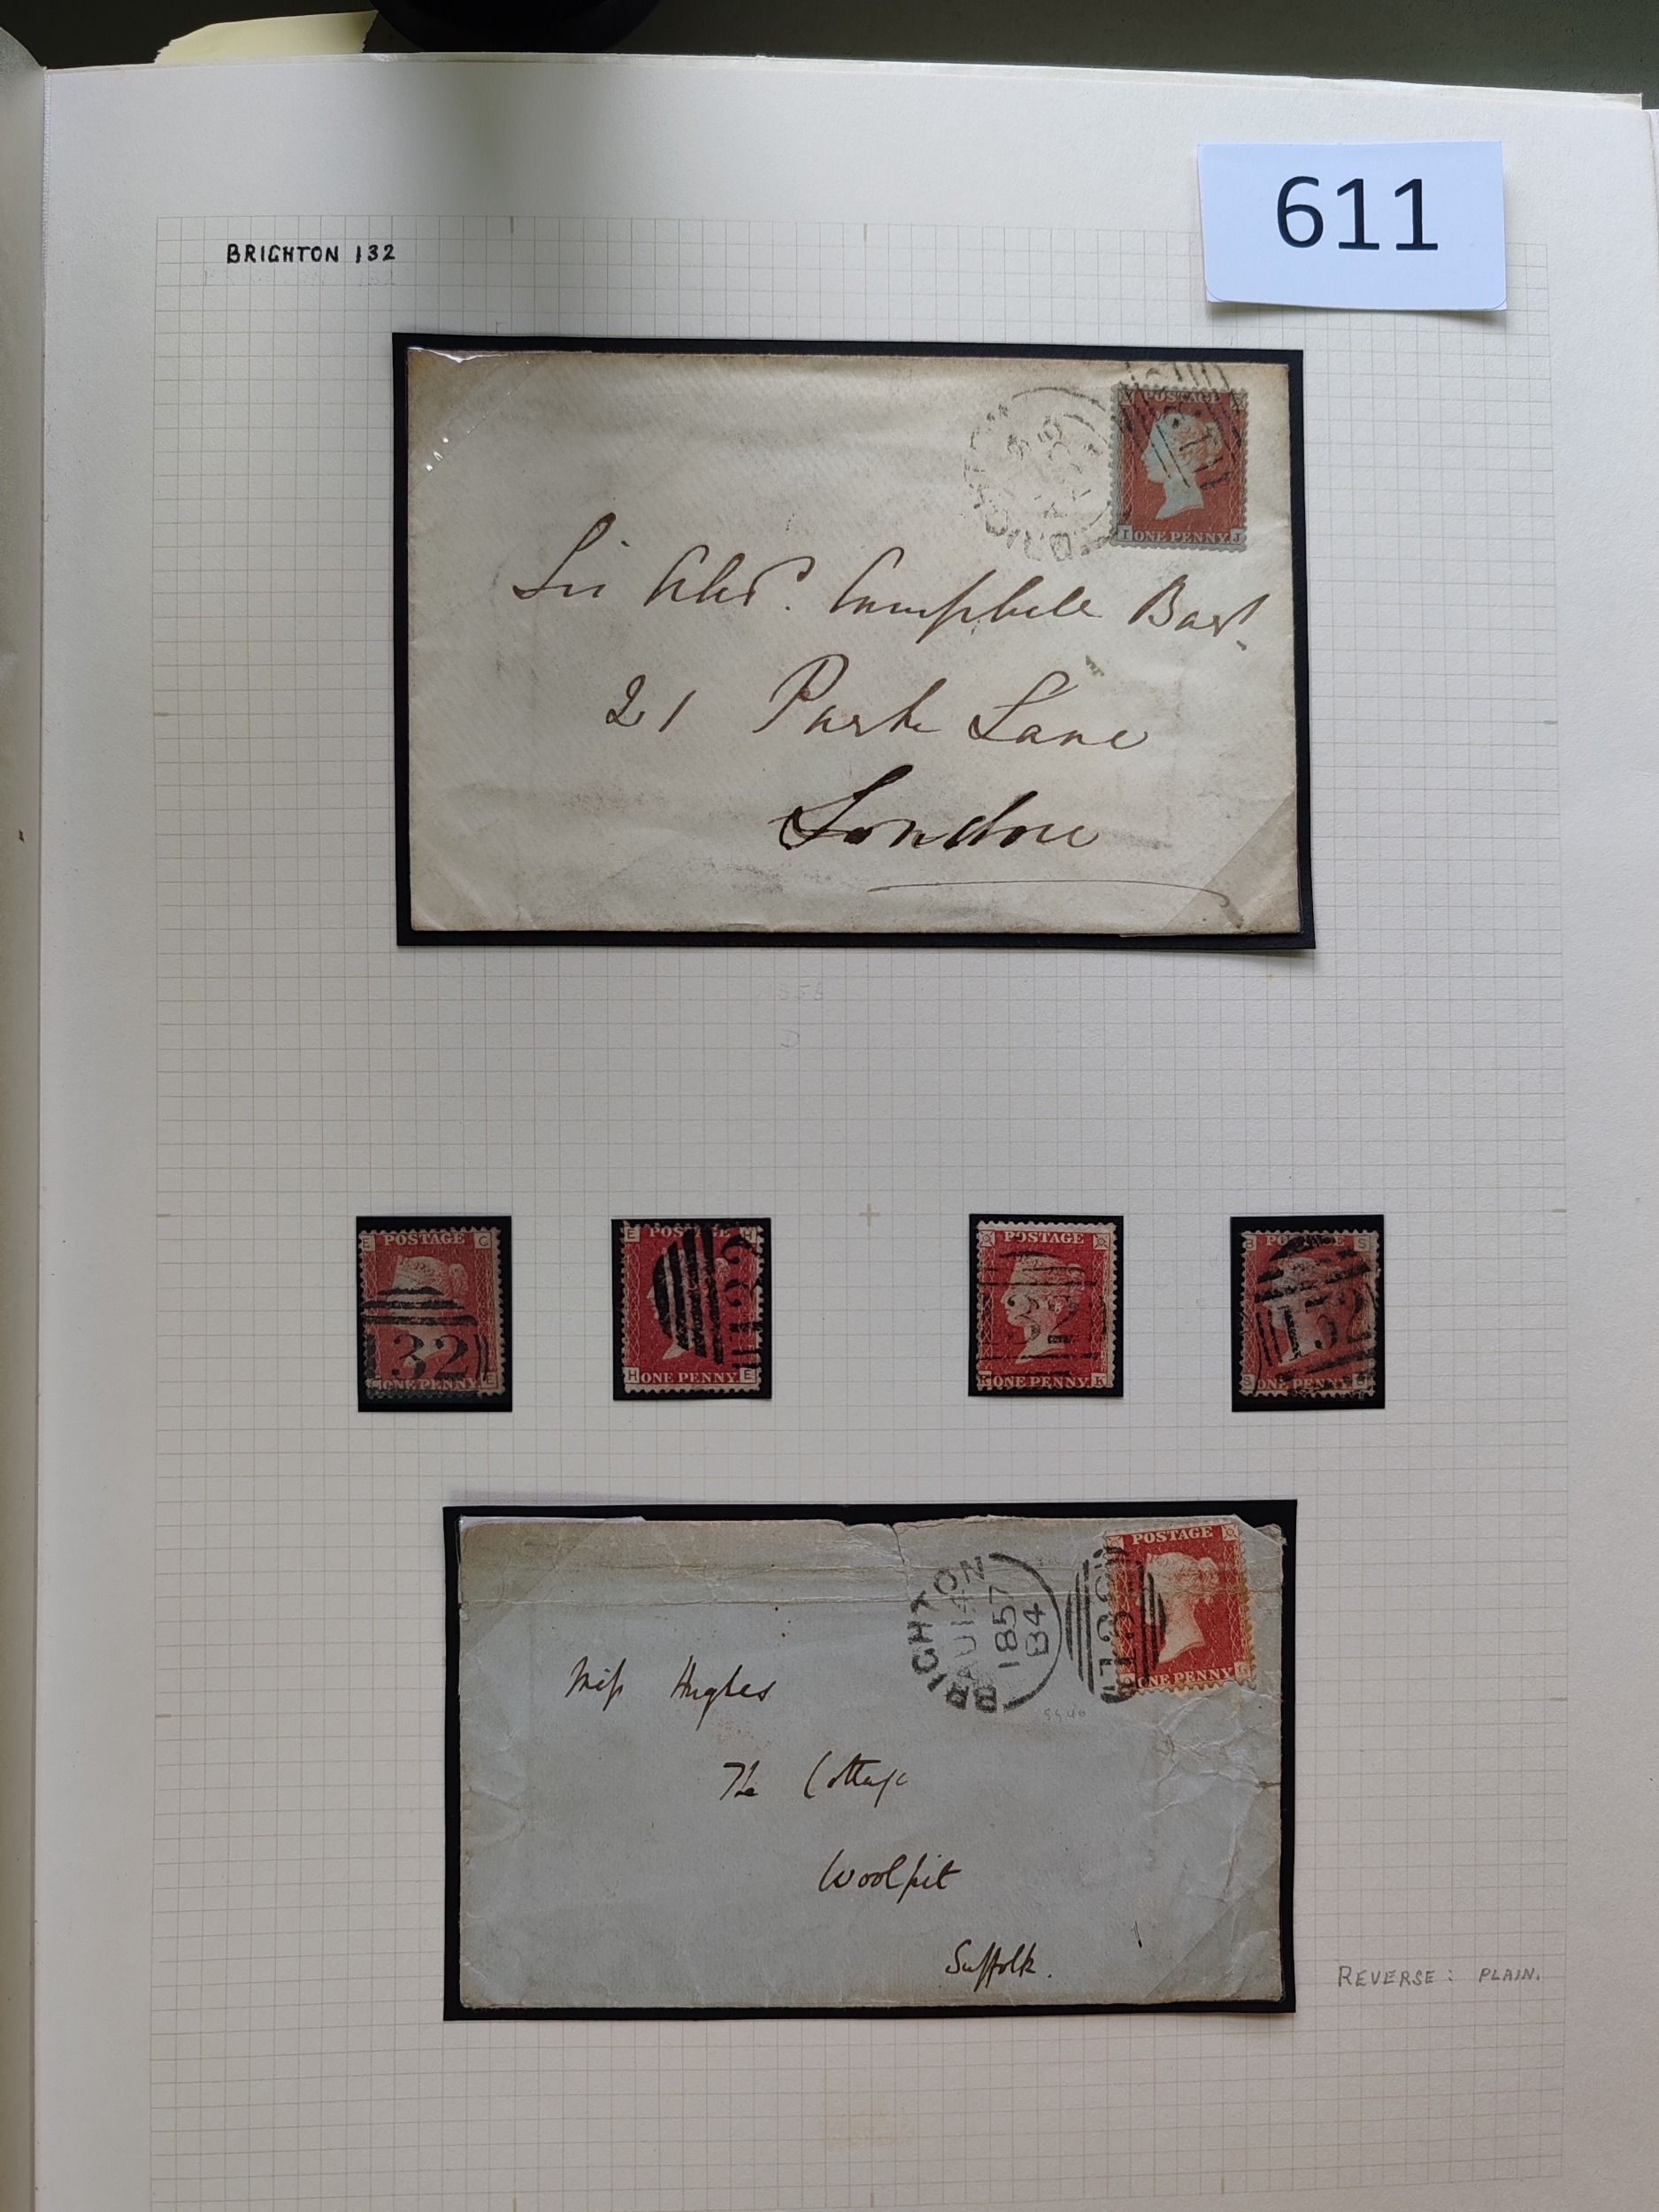 611
BRIGHTON 132
POSTAGE
I ONE PENNY J
BRIGHTON
Sir Alexr. Campbell Bart.
21 Park Lane
London
E POSTAGE C
ONE PENNY E
132
E POSTAGE H
H ONE PENNY E
132
POSTAGE
K ONE PENNY K
132
B POSTAGE S
S ONE PENNY B
132
POSTAGE
ONE PENNY G
BRIGHTON
AU 14
1857
132
Miss Hughes
The Cottage
Woolpit
Suffolk.
REVERSE: PLAIN.